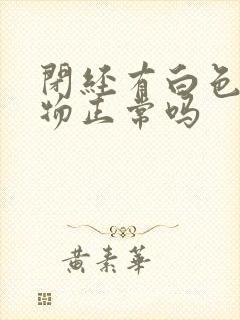 閉経有白色
物正常吗
黄素華